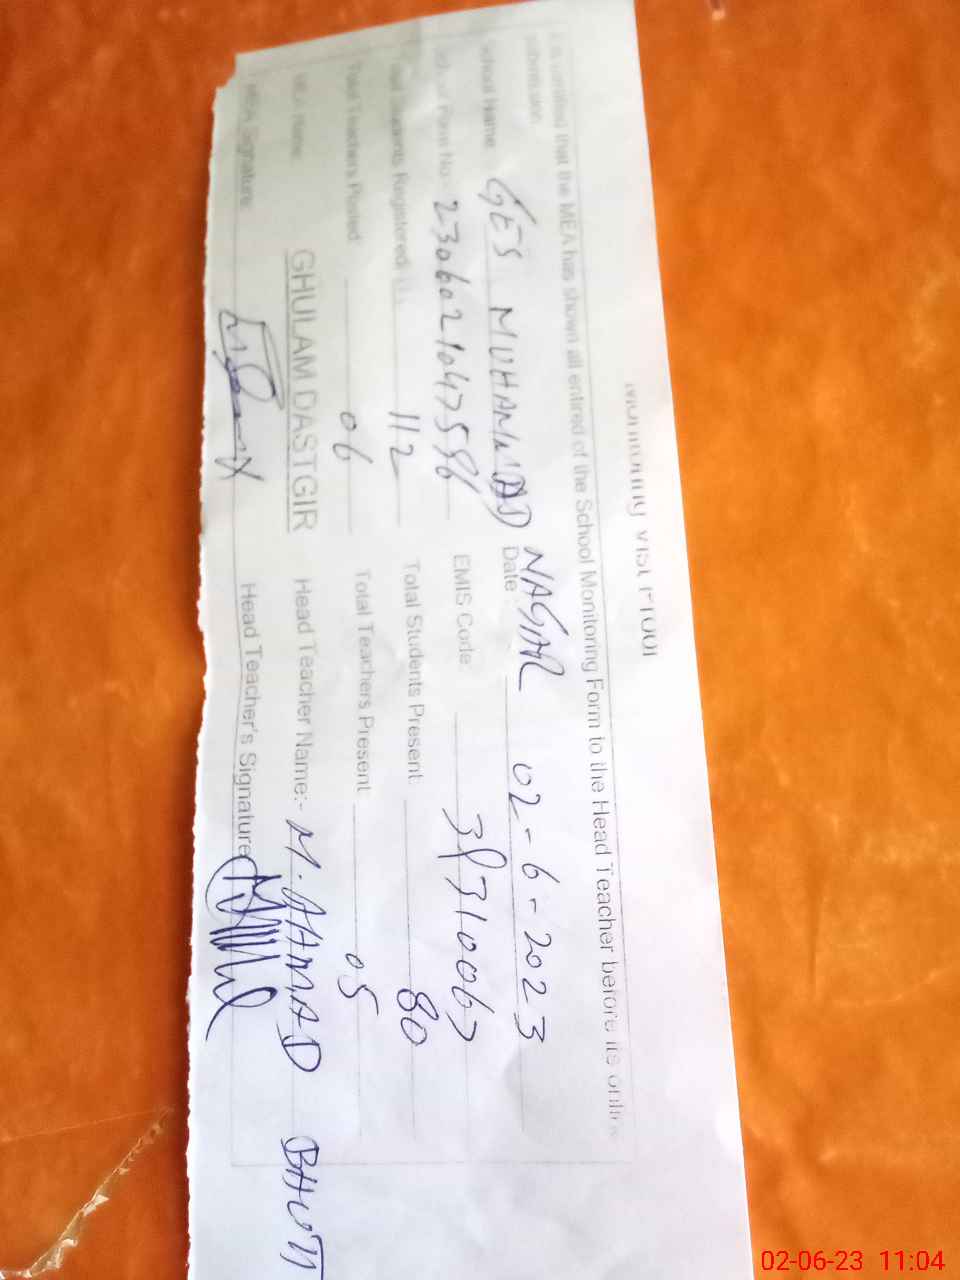 Monitoring Visit Proof
It is certified that the MEA has shown all entired of the School Monitoring Form to the Head Teacher before its online
submission
School Name GES MUHAMMAD NAGAR Date: 02-6-2023
School Phone No:- 2306021047586 EMIS Code 38310067
Total Students Registered: 112 Total Students Present 80
Total Teachers Posted 06 Total Teachers Present 05
MEA Name GHULAM DASTGIR Head Teacher Name:- M. AHMAD BHUTT
MEA Signature: Head Teacher's Signature
02-06-23 11:04